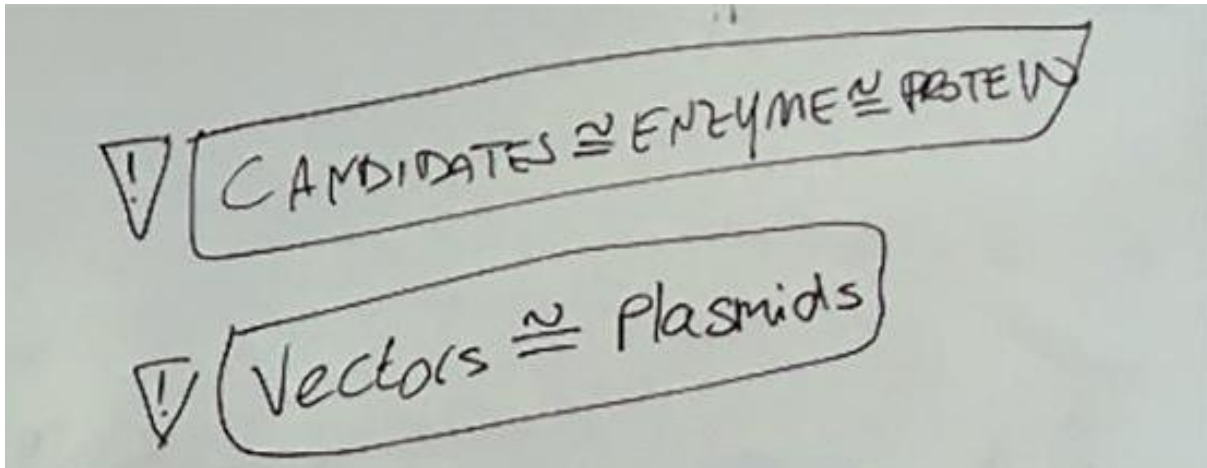 ! CANDIDATES ≅ ENZYME ≅ PROTEIN
! Vectors ≅ Plasmids